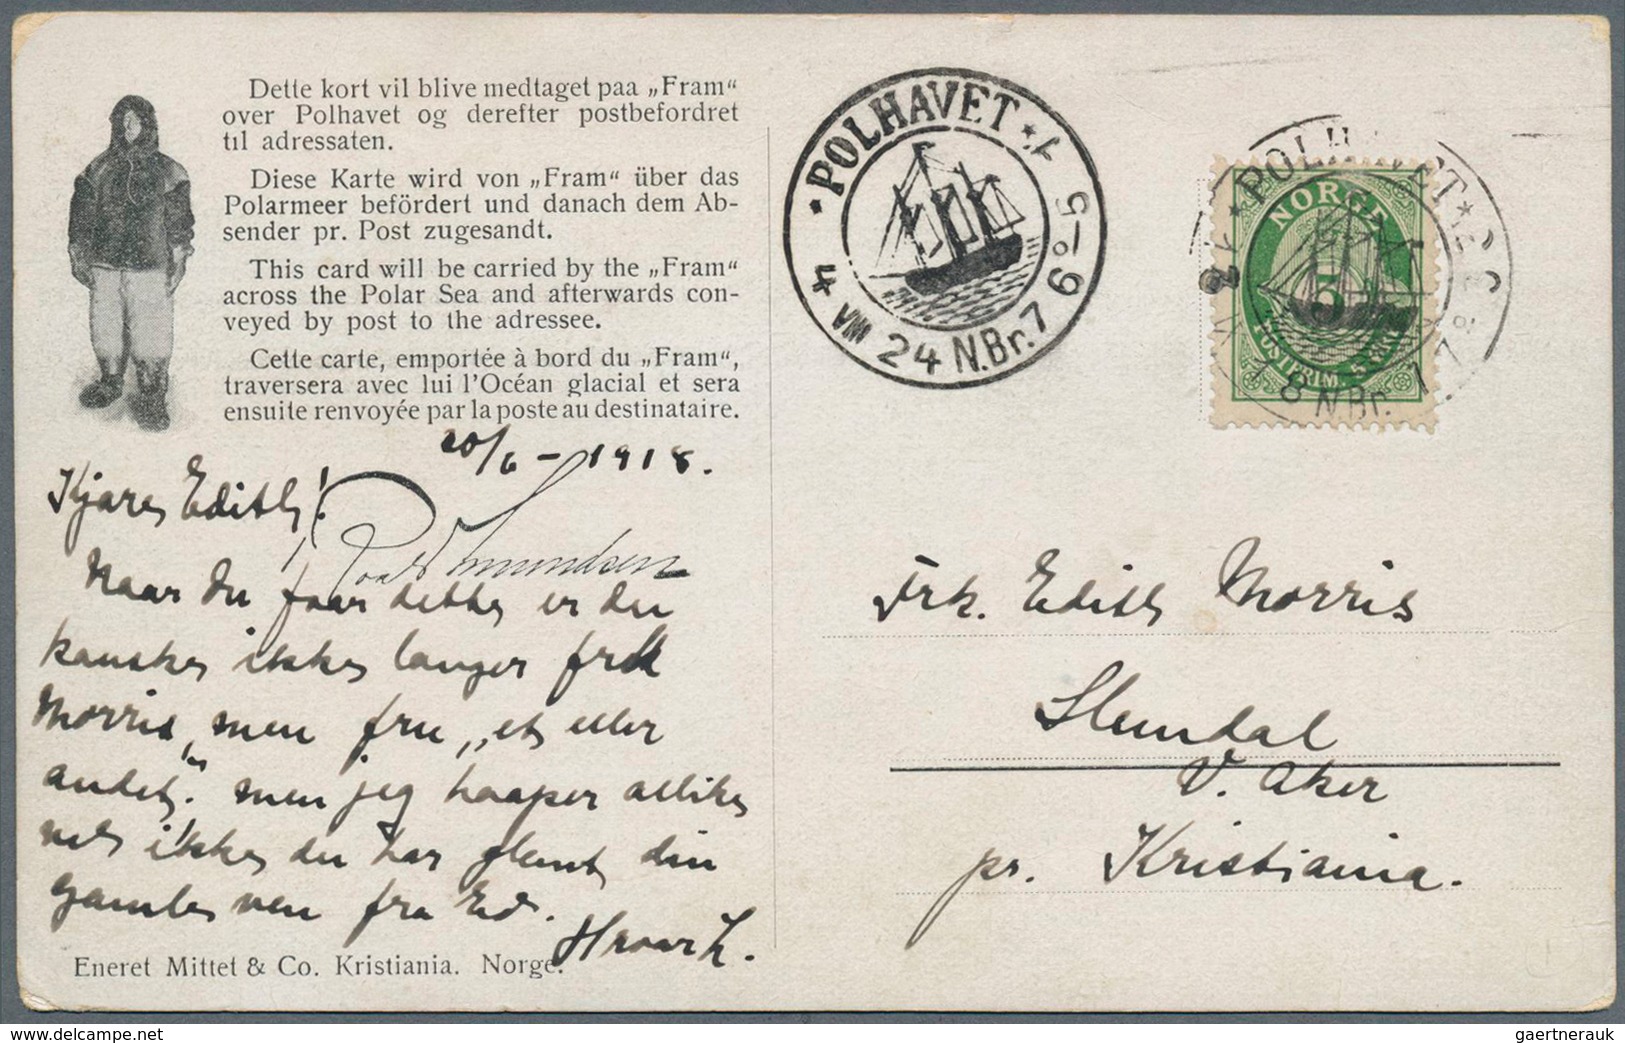 Dette kort vil blive medtaget paa „Fram“
over Polhavet og derefter postbefordret
til adressaten.
Diese Karte wird von „Fram“ über das
Polarmeer befördert und danach dem Ab-
sender pr. Post zugesandt.
This card will be carried by the „Fram“
across the Polar Sea and afterwards con-
veyed by post to the adressee.
Cette carte, emportée à bord du „Fram“,
traversera avec lui l'Océan glacial et sera
ensuite renvoyée par la poste au destinataire.
POLHAVET
4 VIII 24 N.Br. 76°-5
NORGE
5
POSTFRIM. 5
N.Br.
20/6 - 1918.
Kjære Edith!
Roald Amundsen
Naar du faar dette er du
kanske ikke langer frk
Morris, men fru „et eller
andet“. men jeg haaper allike
vel ikke du har glemt din
gamle ven fra Ed.
Eneret Mittet & Co. Kristiania. Norge.
Frk. Edith Morris
V. Aker
pr. Kristiania.